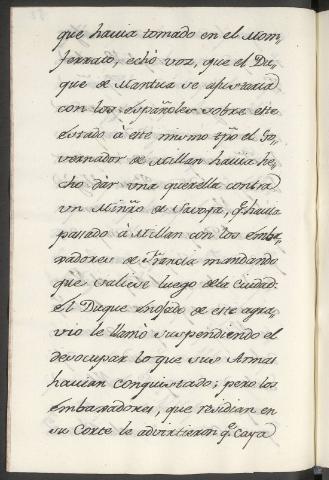 que hauia tomado en el Mom,
ferrato, echò voz, que el Du,
que de Mantua se ajustaria
con los españoles sobre este
estado à este mismo tpõ el Go,
vernador de Millan hauia he,
cho dàr vna querella contra
vn Minrõ de Savoya, q̃ hauia
passado à Millan con los emba,
xadores de Francia mandando
que saliese luego dela ciudad:
el Duque enojado de este agra,
vio le llamò suspendiendo el
desocupar lo que sus Armas
hauian conquistado; pero los
embaxadores, que residian en
su Corte le advirtieron q̃ caya